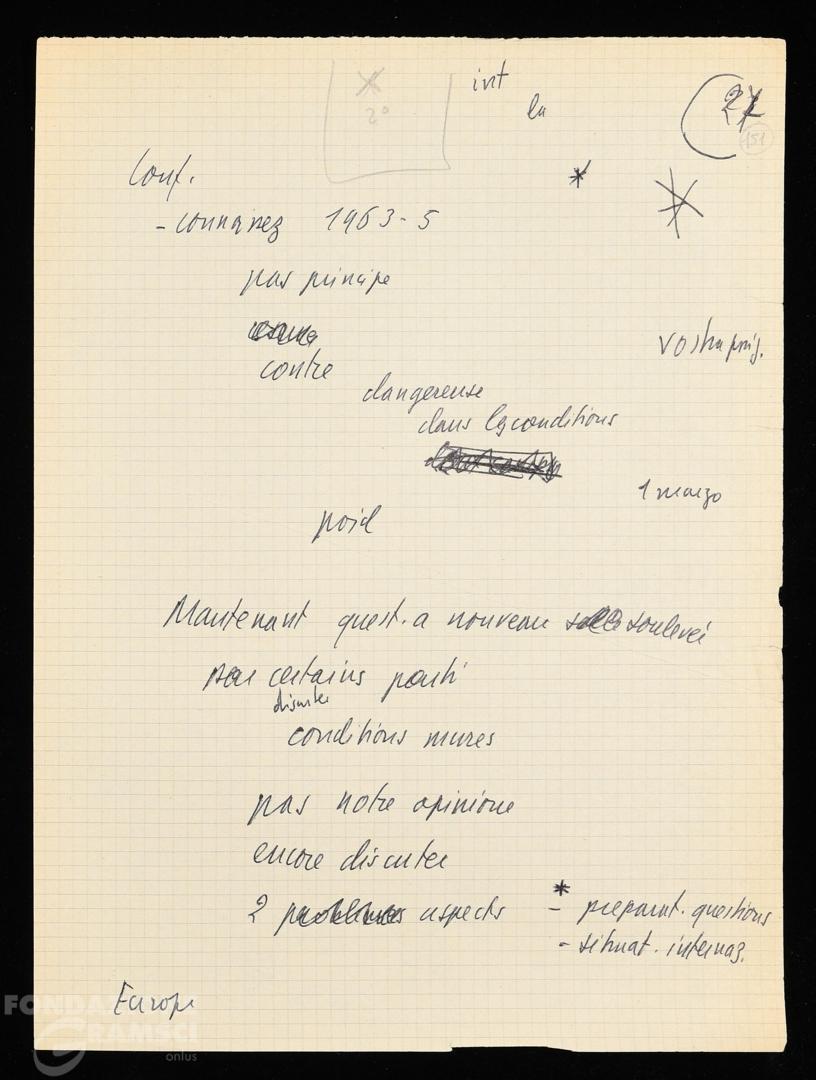 int
la
2
151
2°
Conf.
- connaissez 1963-5
pas principe
contre
vostra prig.
dangereuse
dans les conditions
1 marzo
poid
Maintenant quest. a nouveau soulevée
par certains parti
discuter
conditions mures
pas notre opinione
encore discuter
2 problemes aspects
- preparat. questions
- situat. internaz.
Europe
FONDAZIONE
GRAMSCI
onlus